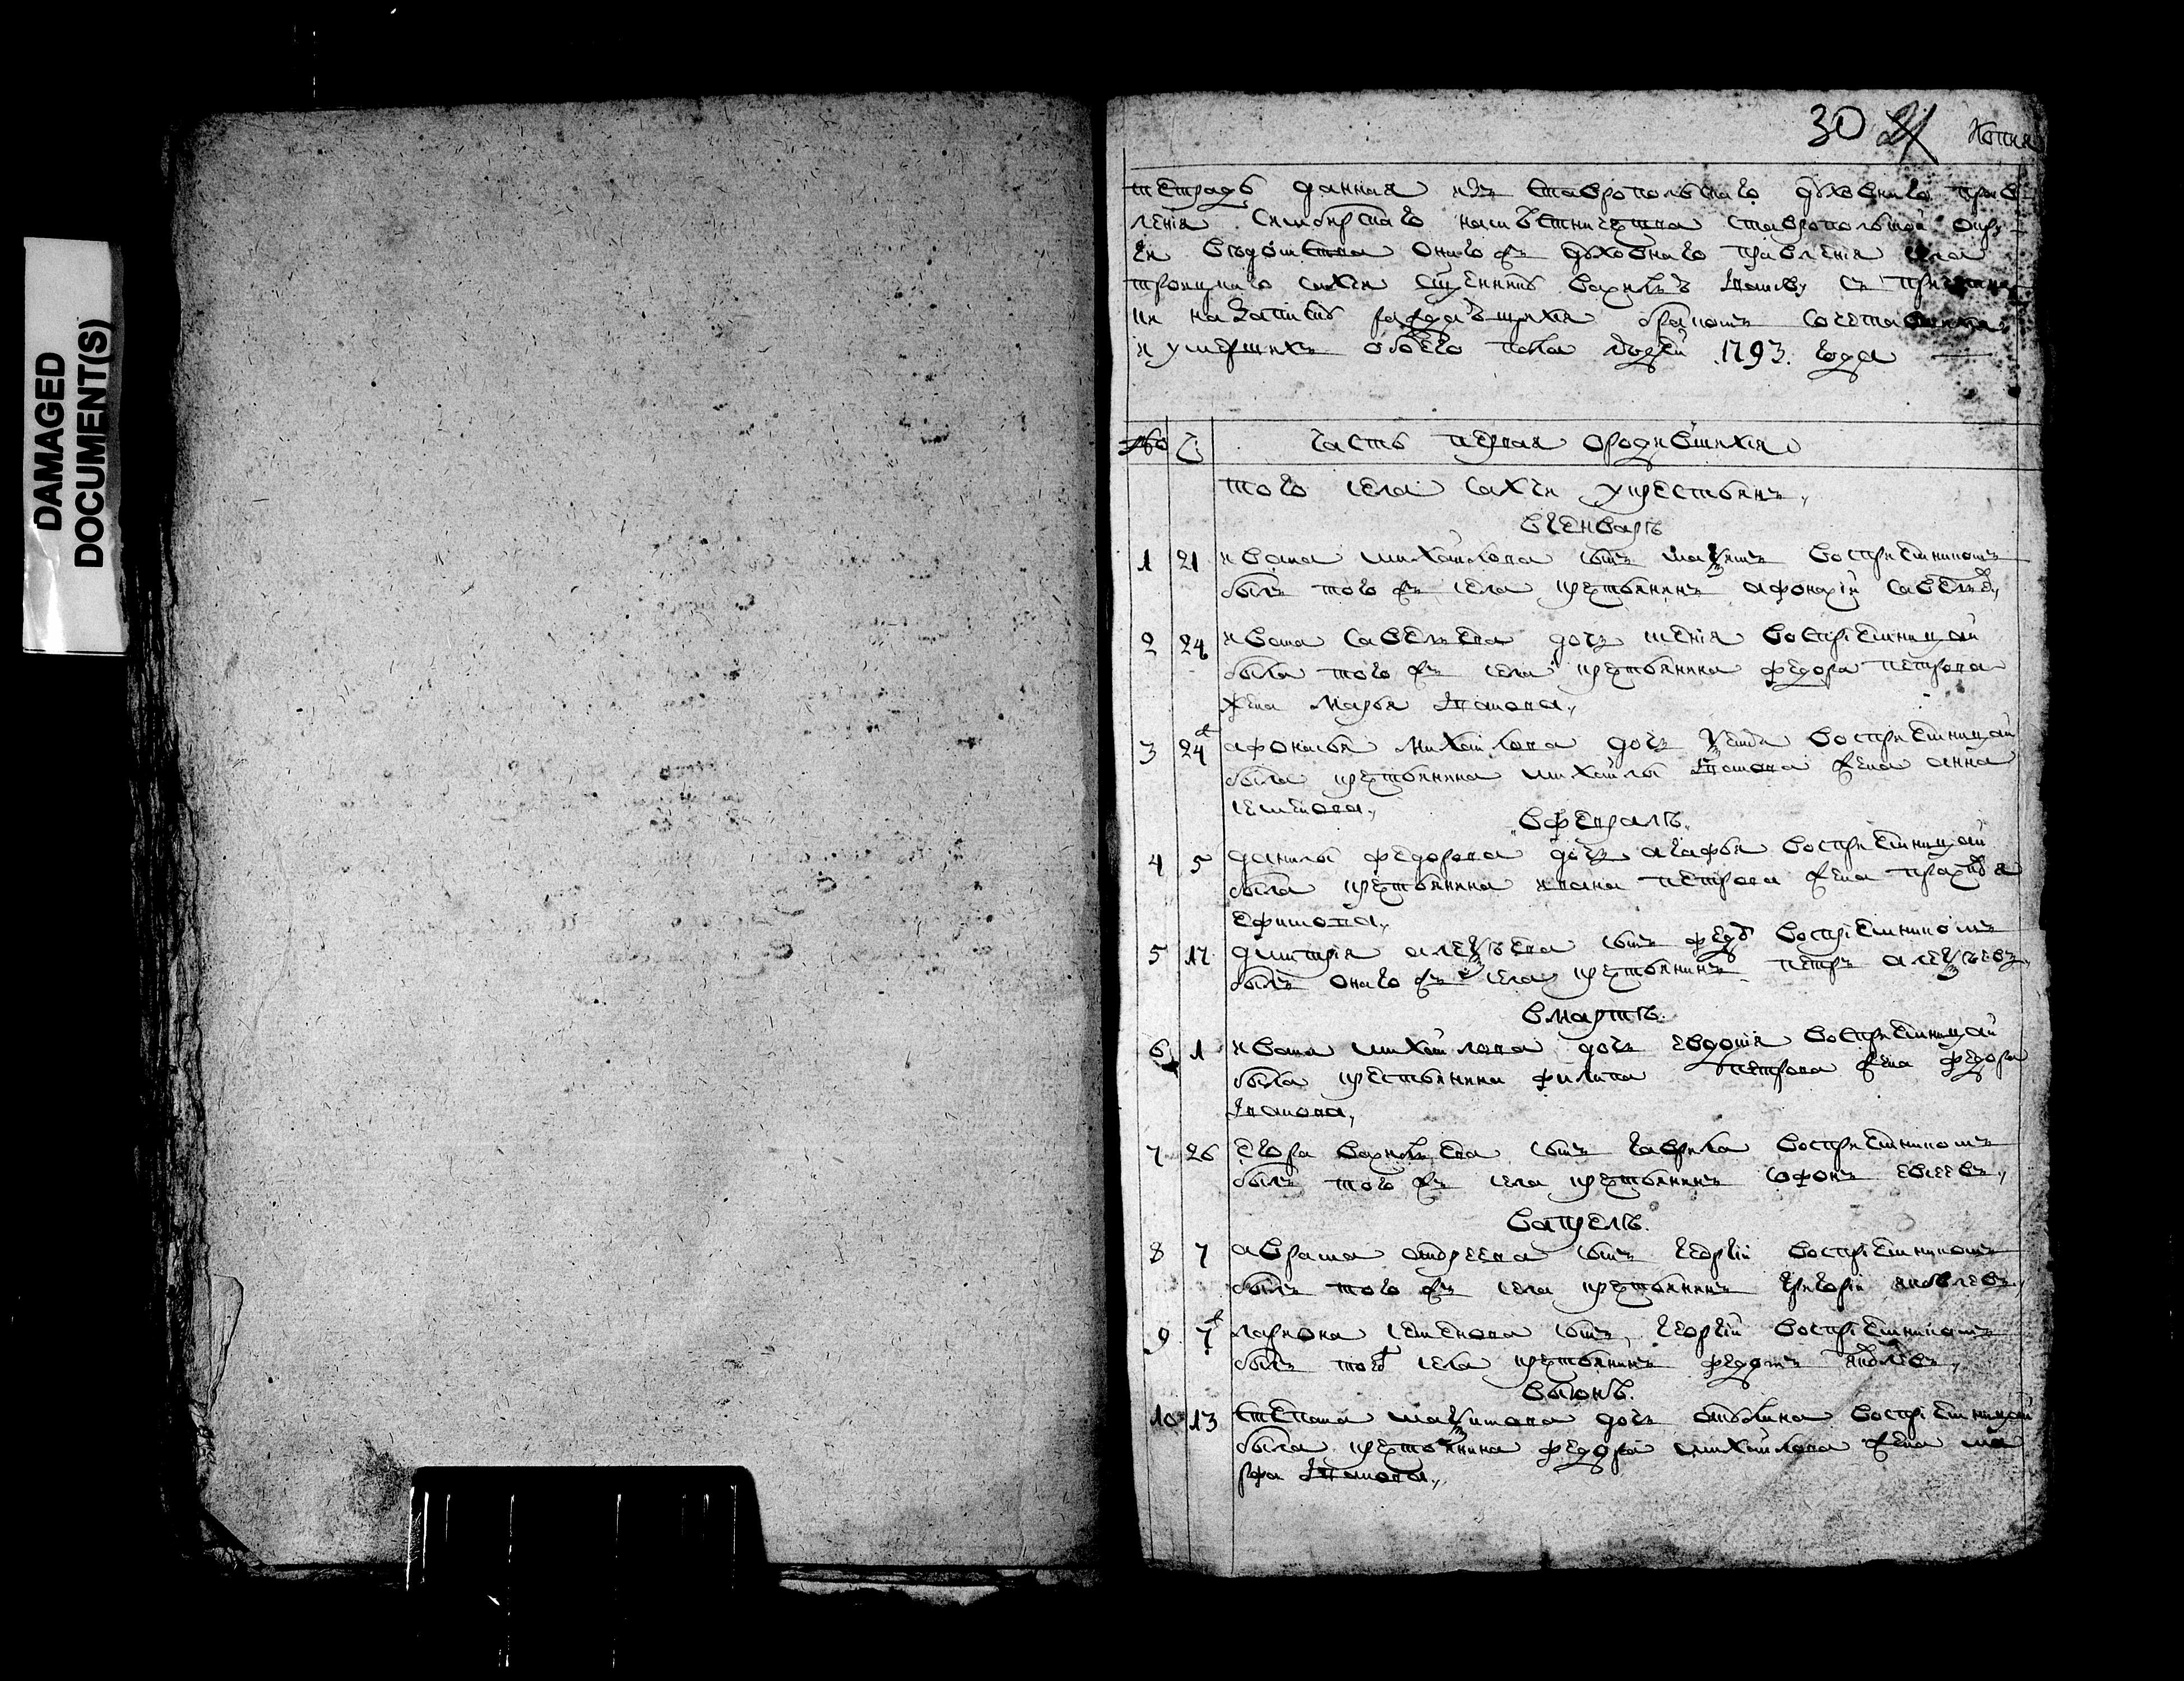 DAMAGED
DOCUMENT(S)
30 21 Копия
тетрадь данная изъ ставропольскаго духовнаго прав
ления Симбирскаго намѣстничества ставропольской окру
ги вѣдомства онаго жъ духовнаго правления села
троицкаго сщенникъ съ
на записку раждающихся бракомъ сочетавшихся
и умершихъ обоего пола людей 1793. года
№ Ч:
часть первая о родившихся
того села у крестьянъ
в генварѣ
1 21 ивана михайлова сынъ маѯимъ восприемникомъ
былъ того жъ села крестьянинъ савелев
2 24 ивана савелева дочь восприемницей
была того жъ села крестьянина федора петрова
жена марья
3 24 михайлова дочь восприемницей
была крестьянина михайлы жена анна
семенова
в феврале
4 5 данилы федорова дочь агафья восприемницей
была крестьянина ивана петрова жена
ефимова
5 17 дмитрия алеѯѣева сынъ восприемникомъ
былъ онаго жъ села крестьянинъ петръ алеѯѣевъ
в мартѣ
6 1 ивана михайлова дочь евдокия восприемницей
была крестьянина филипа петрова жена
7 26 егора сынъ гаврила восприемникомъ
былъ того жъ села крестьянинъ софонъ евсеевъ
в апрелѣ
8 7 аврама андреева сынъ георгий восприемникомъ
былъ того жъ села крестьянинъ григорий яковлевъ
9 7 лариона семенова сынъ георгий восприемникомъ
былъ того ж села крестьянинъ яковлевъ
в июнѣ
10 13 степана маѯимова дочь акулина восприемницей
была крестьянина федора михайлова жена ма
рфа